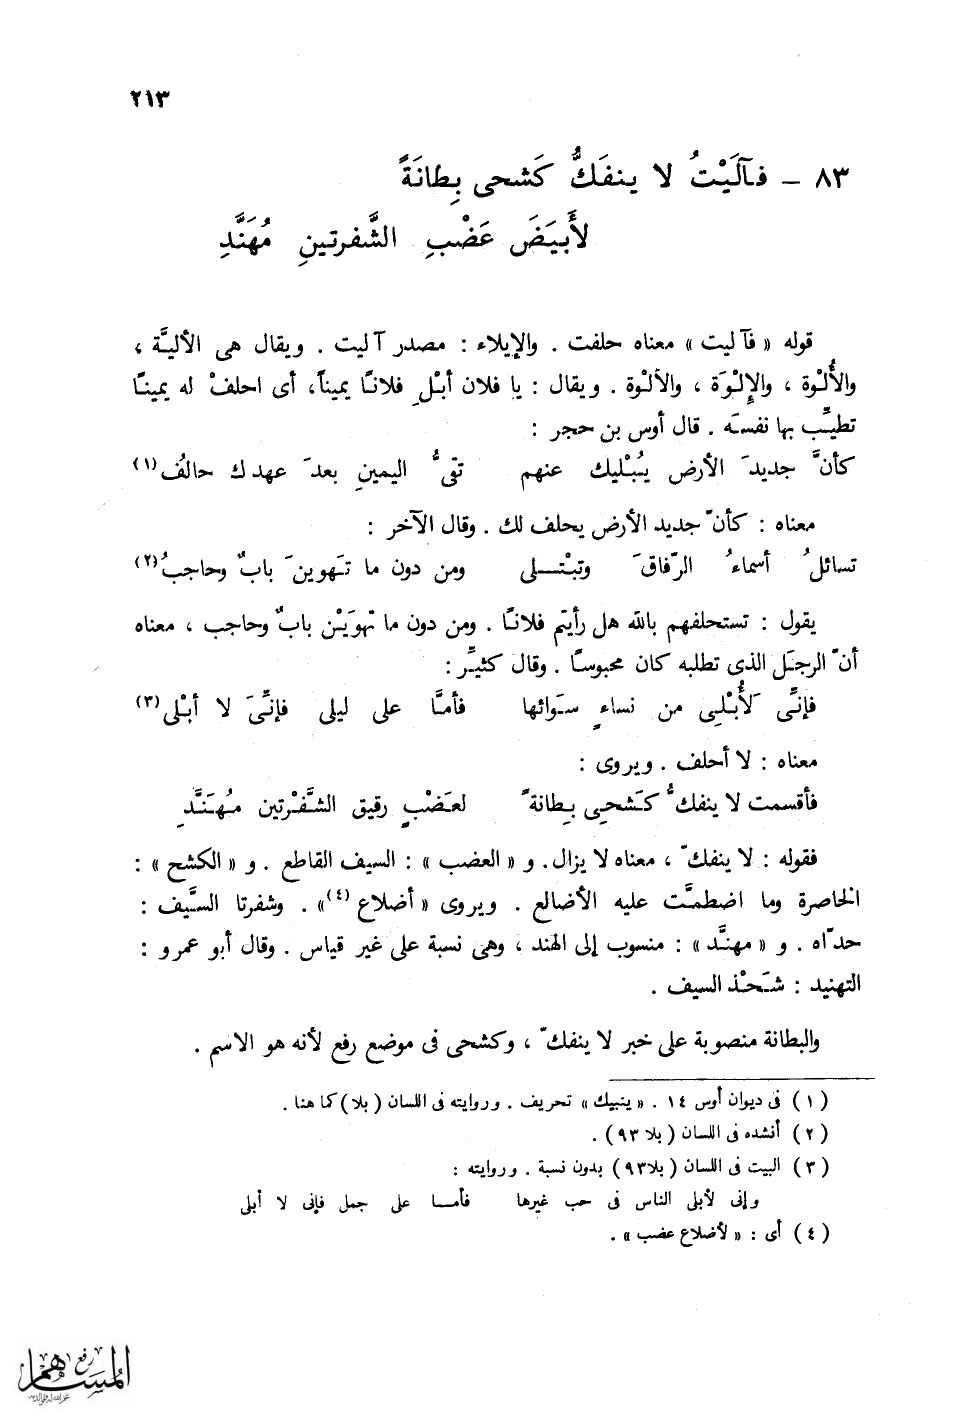 ٢١٣
٨٣ – فآلَيْتُ لا ينفَكُّ كَشحى بِطانَةً
لأَبيَضَ عَضْبِ الشَّفرتينِ مُهَنَّدِ
قوله «فآليت» معناه حلفت . والإيلاء : مصدر آليت . ويقال هى الأليَّة ،
والأُلْوة ، والإِلْوَة ، والألْوة . ويقال : يا فلان أبْلِ فلانًا يميناً، أى احلفْ له يمينًا
تطيِّب بها نفسَه . قال أوس بن حجر :
كأنَّ جديدَ الأرض يُبْليك عنهم تقىُّ اليمينِ بعدَ عهدك حالفُ(١)
معناه : كأنّ جديد الأرض يحلف لك . وقال الآخر :
تسائلُ أسماءُ الرّفاقَ وتبْتَلى ومن دون ما تَهوينَ بابٌ وحاجبُ(٢)
يقول : تستحلفهم بالله هل رأيتم فلانًا . ومن دون ما تهوَيْن بابٌ وحاجب ، معناه
أنّ الرجلَ الذى تطلبه كان محبوسًا . وقال كثيِّر :
فإنِّى لَأُبْلِى من نساءٍ سَوائها فأمَّا على ليلى فإنِّىَ لا أبْلى(٣)
معناه : لا أحلف . ويروى :
فأقسمت لا ينفكُّ كَشحِى بِطانةً لعَضْبٍ رقيق الشَّفْرتين مُهَنَّدِ
فقوله : لا ينفكّ ، معناه لا يزال. و «العضب» : السيف القاطع . و «الكشح» :
الخاصرة وما اضطمَّت عليه الأضالع . ويروى «أضلاع(٤)» . وشفرتا السَّيف :
حدّاه . و «مهنَّد» : منسوب إلى الهند ، وهى نسبة على غير قياس . وقال أبو عمرو :
التهنيد : شَحْذ السيف .
والبطانة منصوبة على خبر لا ينفكّ ، وكشحى فى موضع رفع لأنه هو الاسم .
(١) فى ديوان أوس ١٤ . «ينبيك» تحريف . وروايته فى اللسان (بلا) كما هنا .
(٢) أنشده فى اللسان (بلا ٩٣) .
(٣) البيت فى اللسان (بلا ٩٣) بدون نسبة . وروايته :
وإنى لأبلى الناس فى حب غيرها فأمـا على جمل فإنى لا أبلى
(٤) أى : «لأضلاع عضب» .
رفع
المساهم